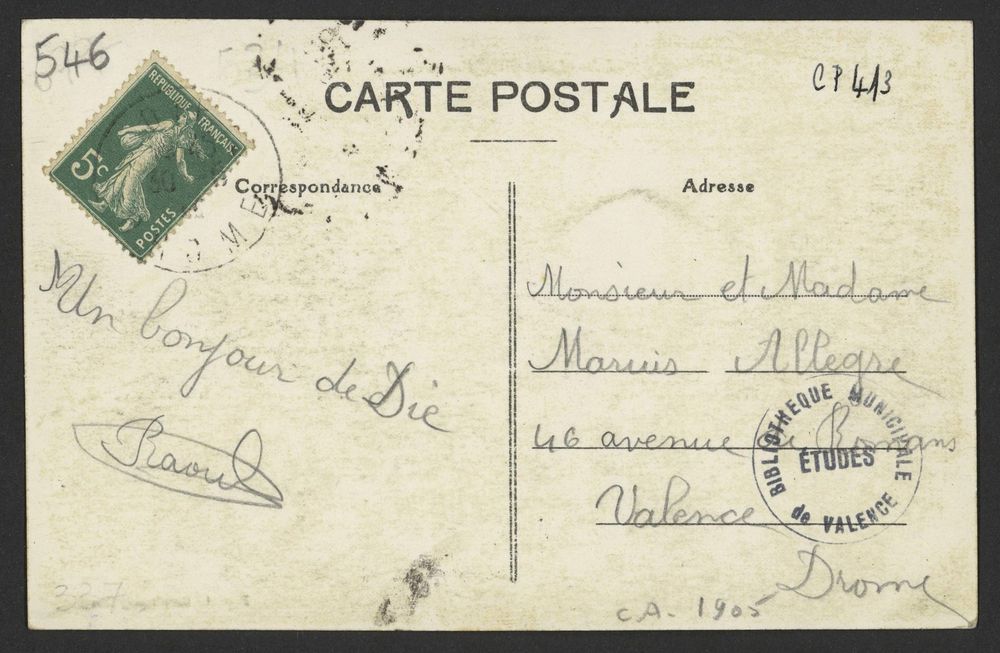 546
CP 413
REPUBLIQUE FRANÇAISE
5c
POSTES
CARTE POSTALE
Correspondance
Adresse
Un bonjour de Die
Raoul
Monsieur et Madame
Marius Allegre
46 avenue de Romans
Valence
Drome
BIBLIOTHEQUE MUNICIPALE
ÉTUDES
de VALENCE
327
CA - 1905